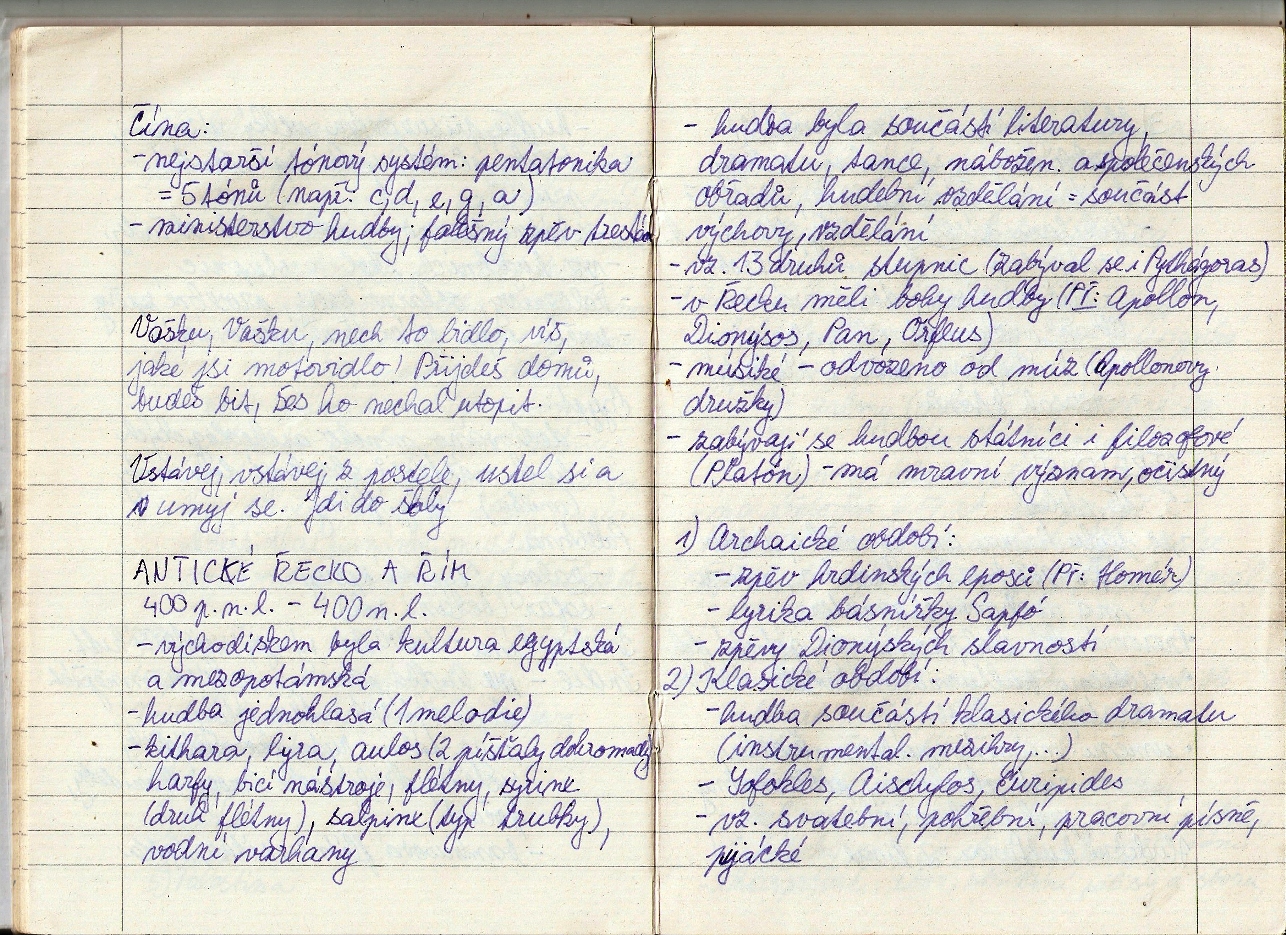 Čína:
-nejstarší tónový systém: pentatonika
= 5 tónů (např. c,d, e, g, a)
- ministerstvo hudby; falešný zpěv trestán
Vašku, Vašku, nech to bidlo, viš,
jaké jsi motovidlo! Přijdeš domů,
budeš bit, žes ho nechal utopit.
Vstávej, vstávej z postele, ustel si a
umyj se. Jdi do školy
ANTICKÉ ŘECKO A ŘÍM
400 p.n.l. - 400 n.l.
-východiskem byla kultura egyptská
a mezopotámská
-hudba jednohlasá (1 melodie)
-kithara, lyra, aulos (2 píšťaly dohromady)
harfy, bicí nástroje, flétny, syrinx
(druh flétny), salpinx (typ trubky),
vodní varhany
- hudba byla součástí literatury,
dramatu, tance, nábožen. a společenských
obřadů, hudební vzdělání = součást
výchovy, vzdělání
- vz. 13 druhů stupnic (zabýval se i Pythágoras)
- v Řecku měli bohy hudby (Př: Apollón,
Dionýsos, Pan, Orfeus)
- músiké - odvozeno od múz (Apollonovy
družky)
- zabývají se hudbou státníci i filozofové
(Platón) - má mravní význam, očistný
1) Archaické období:
- zpěv hrdinských eposů (Př: Homér)
- lyrika básnířky Sapfó
- zpěvy Dionýských slavností
2) Klasické období:
-hudba součástí klasického dramatu
(instrumental. mezihry,...)
- Sofokles, Aischylos, Euripides
- vz. svatební, pohřební, pracovní písně,
pijácké